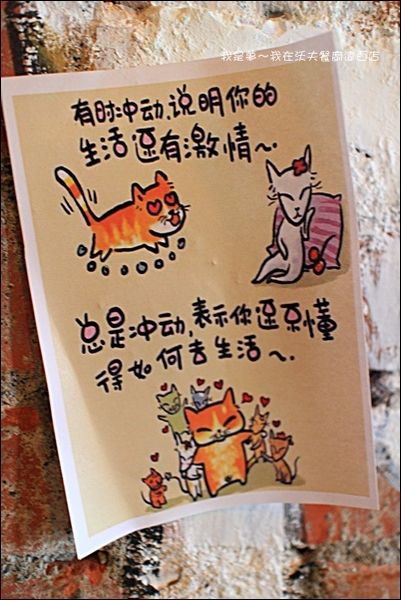 我是事～我在沃夫餐廚窩百店
有时冲动,说明你的
生活还有激情～.
总是冲动,表示你还不懂
得如何去生活～.